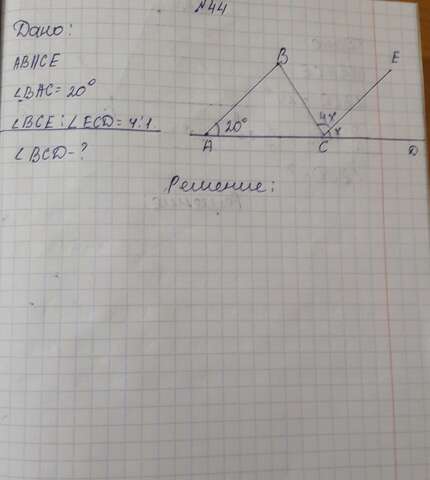 №44
Дано:
AB||CE
∠BAC = 20°
∠BCE : ∠ECD = 4:1
∠BCD - ?
B
E
20°
4x
x
A
C
D
Решение: